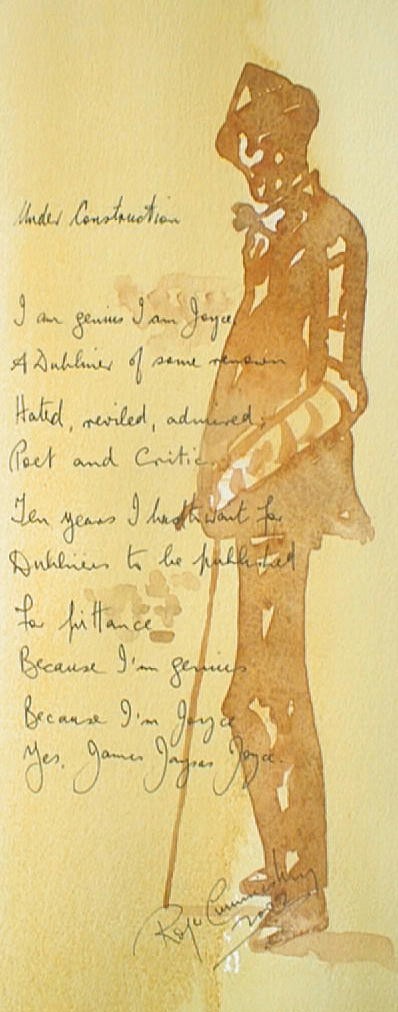 Under Construction
I am genius I am Joyce,
A Dubliner of some renown
Hated, reviled, admired,
Poet and Critic.
Ten years I had to wait for
Dubliners to be published
For pittance
Because I'm genius
Because I'm Joyce
Yes, James Jaysus Joyce.
2002